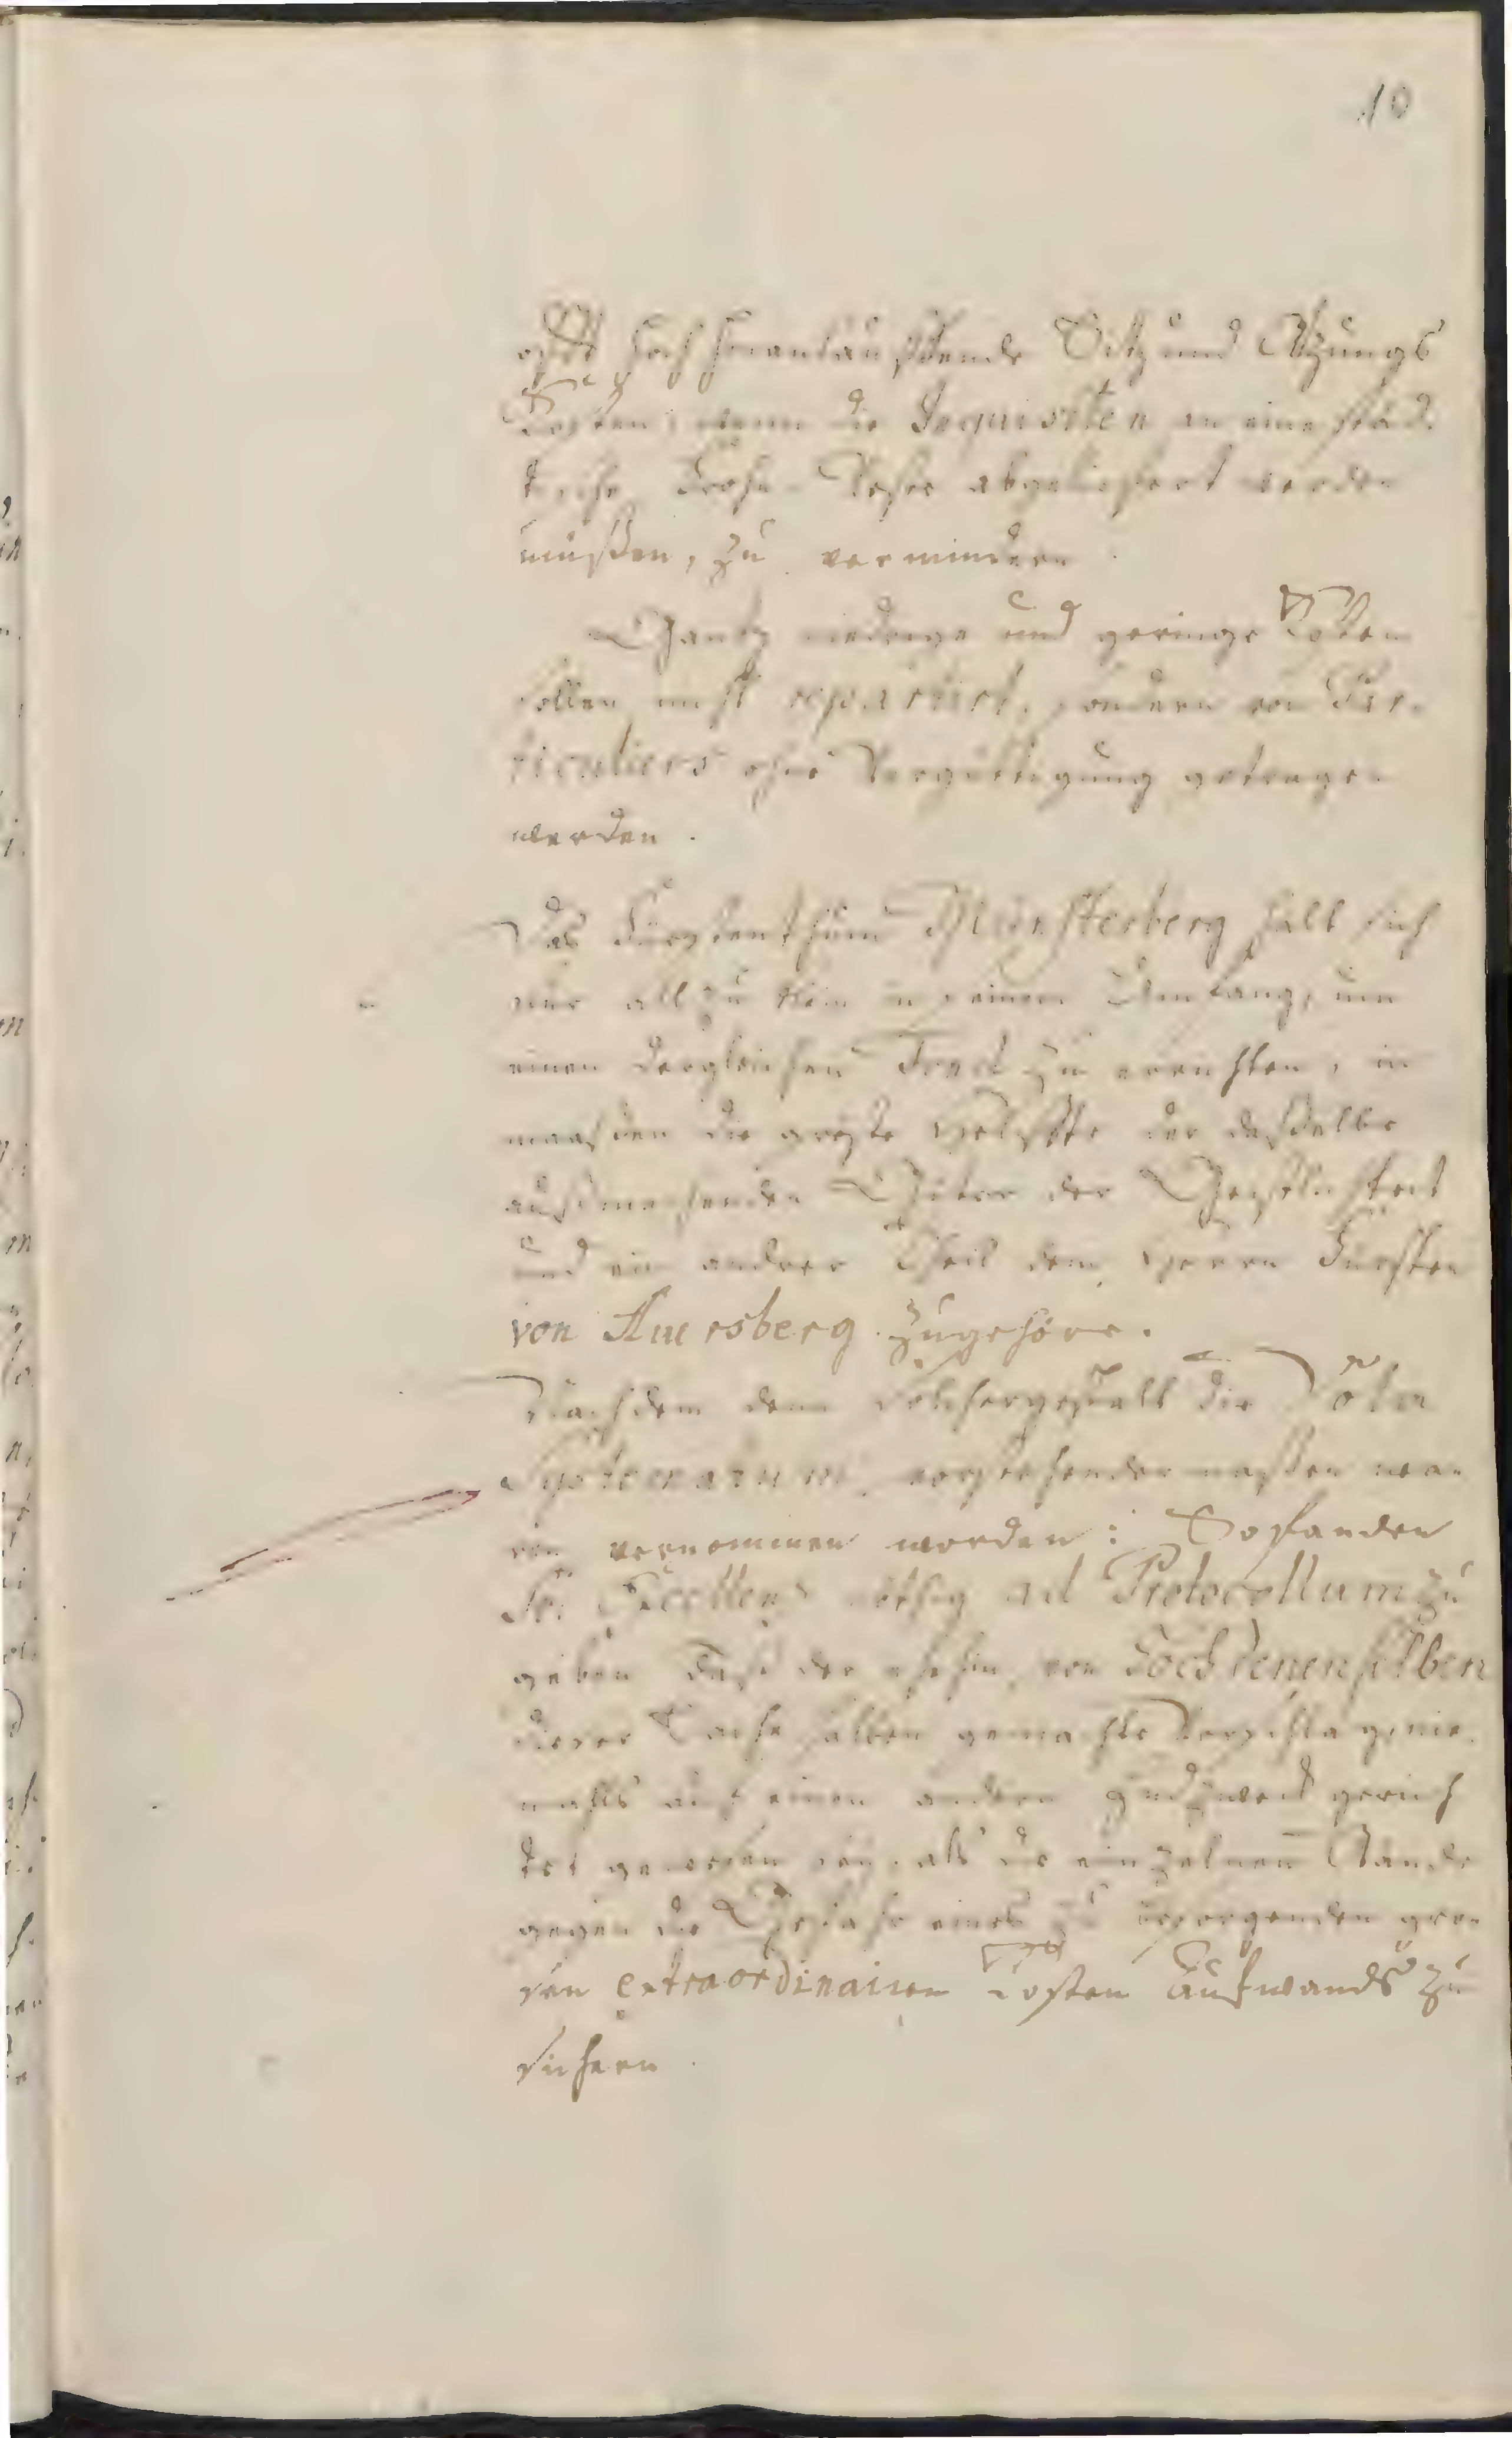 10
offt hoch hinanlauffende Sitz und Atzungs
Kosten, wenn die Inquisiten an eine städ
tische Frohn Veste abgeliefert werden
müßen, zu vermindern.
Gantz niedrige und geringe Kosten
sollen nicht repartirt, sondern von Par-
ticuliers ohne Vergüttigung getragen
werden.
Das Fürstenthum Münsterberg hält sich
nur allzu klein in seinem Umfang, um
einen dergleichen Fond zu errichten, in
maaßen die gröste Helffte der dasselbe
ausmachenden Güter der Geistlichkeit
und ein andrer Theil dem Herrn Fürsten
von Auersberg zugehöre.
Nachdem denn solchergestalt die Vota
Systematum vorstehendermaßen wa-
ren vernommen worden: So fanden
Se. Excellenz nöthig ad Protocollum zu
geben daß der ehehin von Hochdenenselben
dieser Sache halben gemachte Vorschlag nie-
mahls auf einen andern Endzweck gerich
tet gewesen sey, als die einzelnen Stände
gegen die Gefahr eines zu besorgenden gro-
sen extraordinairen Kosten Aufwands zu
sichern.